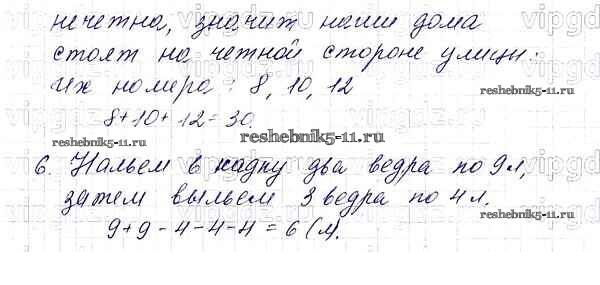 нечетна, значит наши дома
стоят на четной стороне улицы.
Их номера: 8, 10, 12
8+10+12=30
reshebnik5-11.ru
reshebnik5-11.ru
6. Нальем в кадку два ведра по 9 л,
затем выльем 3 ведра по 4 л.
reshebnik5-11.ru
9+9-4-4-4=6 (л).